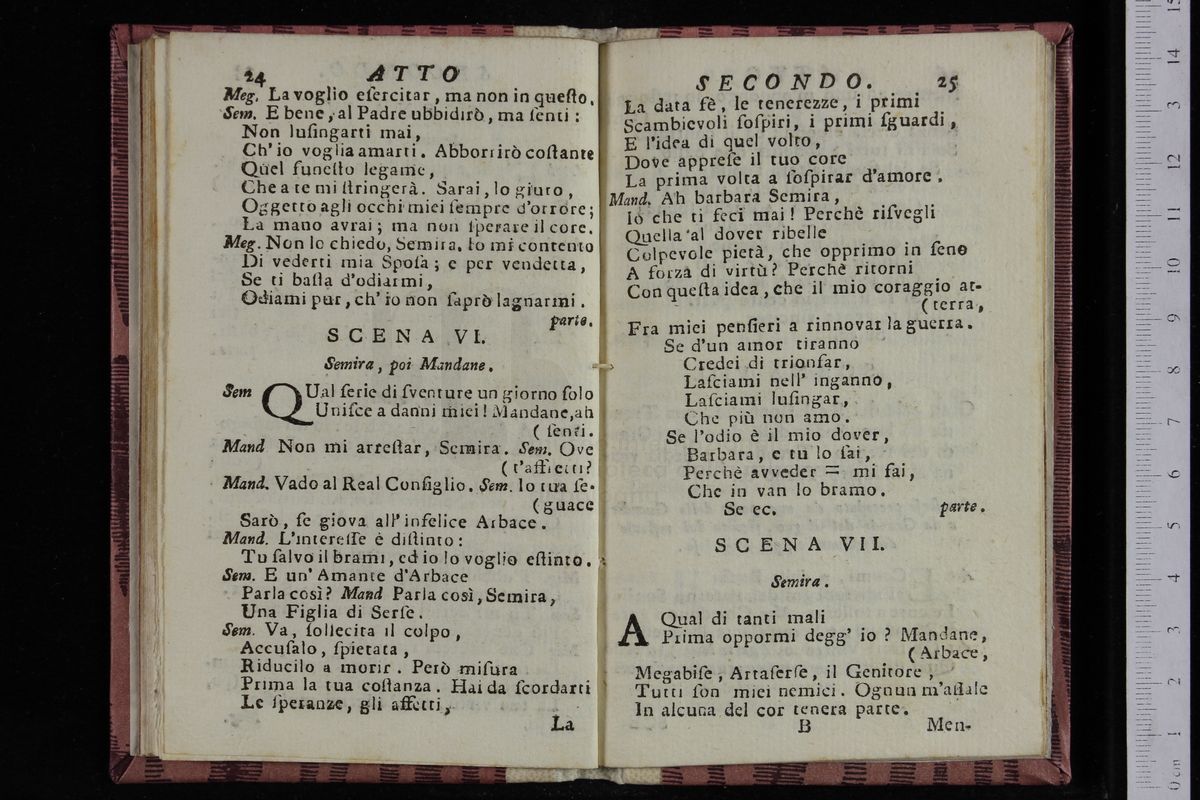 24 ATTO
Meg. La voglio eſercitar, ma non in queſto.
Sem. E bene, al Padre ubbidirò, ma ſenti:
Non luſingarti mai,
Ch' io voglia amarti. Abborrirò coſtante
Quel funeſto legame,
Che a te mi ſtringerà. Sarai, lo giuro,
Oggetto agli occhi miei ſempre d'orrore;
La mano avrai; ma non ſperare il core.
Meg. Non lo chiedo, Semira. Io mi contento
Di vederti mia Spoſa; e per vendetta,
Se ti baſta d'odiarmi,
Odiami pur, ch' io non ſaprò lagnarmi.
parte.
SCENA VI.
Semira, poi Mandane.
Sem QUal ſerie di ſventure un giorno ſolo
Uniſce a danni miei! Mandane, ah
( ſenti.
Mand Non mi arreſtar, Semira. Sem. Ove
( t'affretti?
Mand. Vado al Real Conſiglio. Sem. Io tua ſe-
(guace
Sarò, ſe giova all' infelice Arbace.
Mand. L'intereſſe è diſtinto:
Tu ſalvo il brami, ed io lo voglio eſtinto.
Sem. E un' Amante d'Arbace
Parla così? Mand Parla così, Semira,
Una Figlia di Serſe.
Sem. Va, ſollecita il colpo,
Accuſalo, ſpietata,
Riducilo a morir. Però miſura
Prima la tua coſtanza. Hai da ſcordarti
Le ſperanze, gli affetti,
La
SECONDO. 25
La data fè, le tenerezze, i primi
Scambievoli ſoſpiri, i primi ſguardi,
E l'idea di quel volto,
Dove appreſe il tuo core
La prima volta a ſoſpirar d'amore.
Mand. Ah barbara Semira,
Io che ti feci mai! Perchè riſvegli
Quella al dover ribelle
Colpevole pietà, che opprimo in ſeno
A forza di virtù? Perchè ritorni
Con queſta idea, che il mio coraggio at-
(terra,
Fra miei penſieri a rinnovar la guerra.
Se d'un amor tiranno
Credei di trionfar,
Laſciami nell' inganno,
Laſciami luſingar,
Che più non amo.
Se l'odio è il mio dover,
Barbara, e tu lo ſai,
Perchè avveder = mi fai,
Che in van lo bramo.
Se ec. parte.
SCENA VII.
Semira.
A Qual di tanti mali
Prima oppormi degg' io? Mandane,
(Arbace,
Megabiſe, Artaſerſe, il Genitore,
Tutti ſon miei nemici. Ognun m'aſſale
In alcuna del cor tenera parte.
B Men-